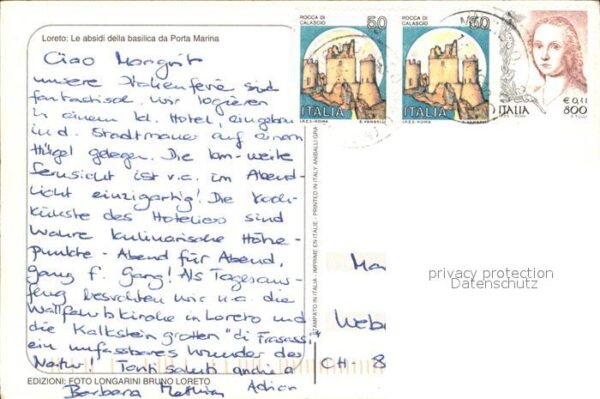 Loreto: Le absidi della basilica da Porta Marina
Ciao Margrit
unsere Italienferie sind
fantastisch. Wir logieren
in einem kl. Hotel, eingebau
in d. Stadtmauer auf einem
Hügel gelegen. Die km-weite
Fernsicht ist v.a. im Abend-
licht einzigartig! Die Koch-
künste des Hoteliers sind
wahre kulinarische Höhe-
punkte - Abend für Abend,
Gang f. Gang! Als Tagesaus-
flug besuchten wir u.a. die
Wallfahrtskirche in Loreto und
die Kalksteingrotten "di Frasassi"
ein unfassbares Wunder der
Natur! Tanti saluti anche a
Adrian
Barbara
EDIZIONI: FOTO LONGARINI BRUNO LORETO
STAMPATO IN ITALIA - IMPRIME EN ITALIE - PRINTED IN ITALY
ROCCA DI
CALASCIO
50
ITALIA
ROCCA DI
CALASCIO
50
ITALIA
€ 0,41
800
ITALIA
Mar
privacy protection
Datenschutz
Webe
CH - 8